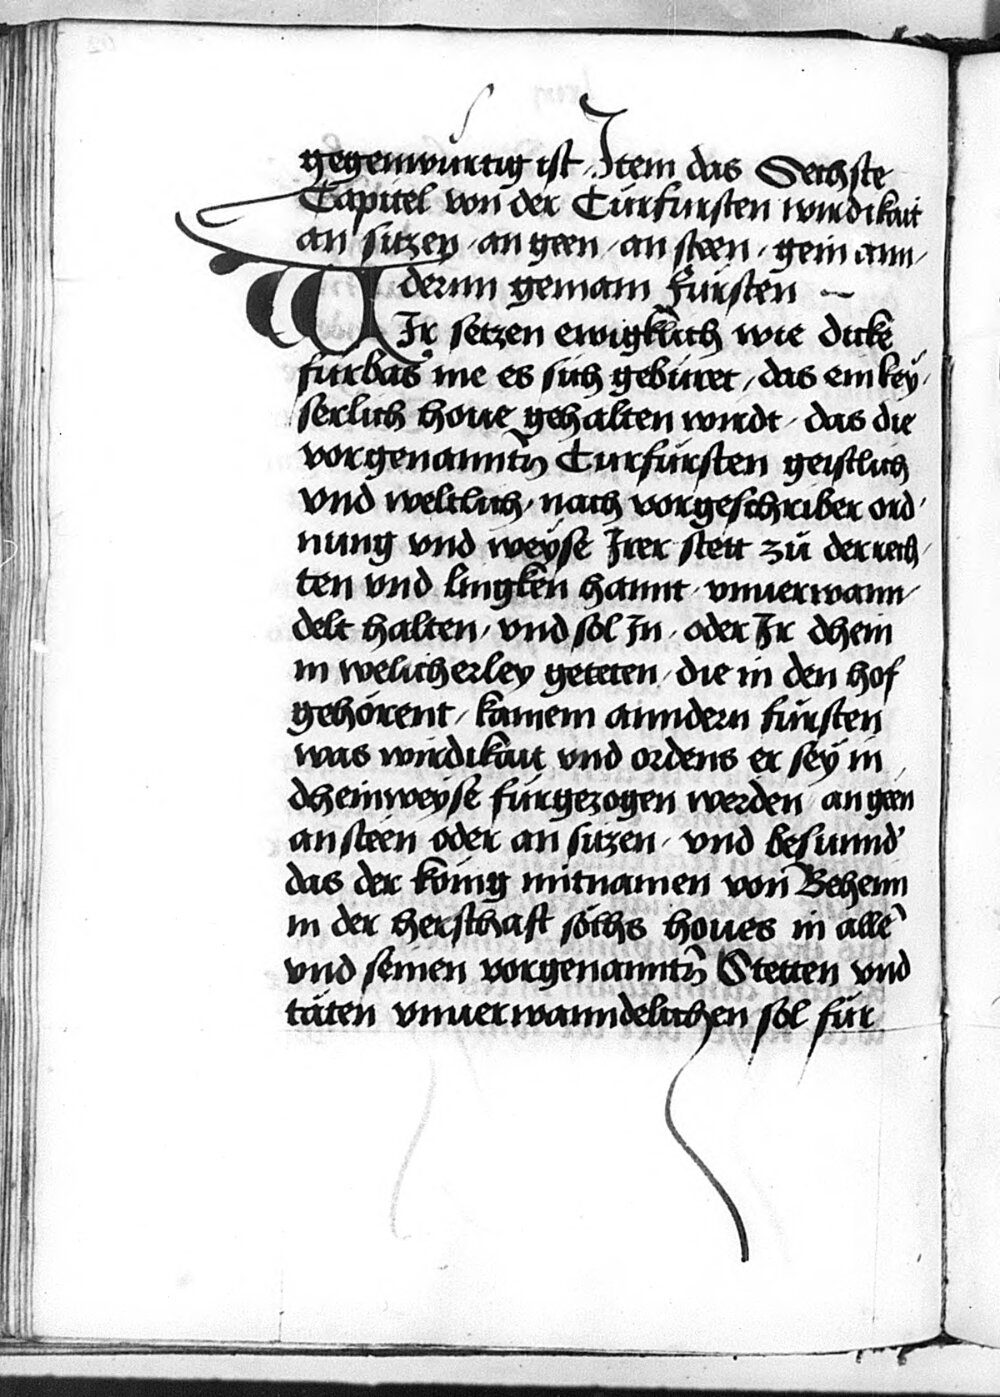 gegenwurtig ist Item das Sechste
Capitel von der Curfursten wirdikait
an sitzen / an geen / an steen / gein ann/
dernn gemain Fürsten ~
WIr setzen ewigklich wie dicke
furbas me es sich gebüret / das ein key/
serlich houe gehalten wirdt / das die
vorgenanntn̄ Curfürsten geistlich
vnd weltlich / nach vorgeschriber ord/
nung vnd weyse Irer stett zü der rech/
ten vnd lingken hannt / vnuerwann/
delt halten / vnd sol In / oder Ir dhein
in welicherley geteten / die in den hof
gehörent / kainem anndern fürsten
was wirdikait vnd ordens er sey in
dheinweyse fürgezogen werden / an geen
an steen oder an sitzen / vnd besunnd'
das der könig mitnamen von Behenn
in der herschaft sölchs houes in alle͂
vnd seinen vorgenanntn̄ Stetten vnd
täten vnuerwanndelichen sol für